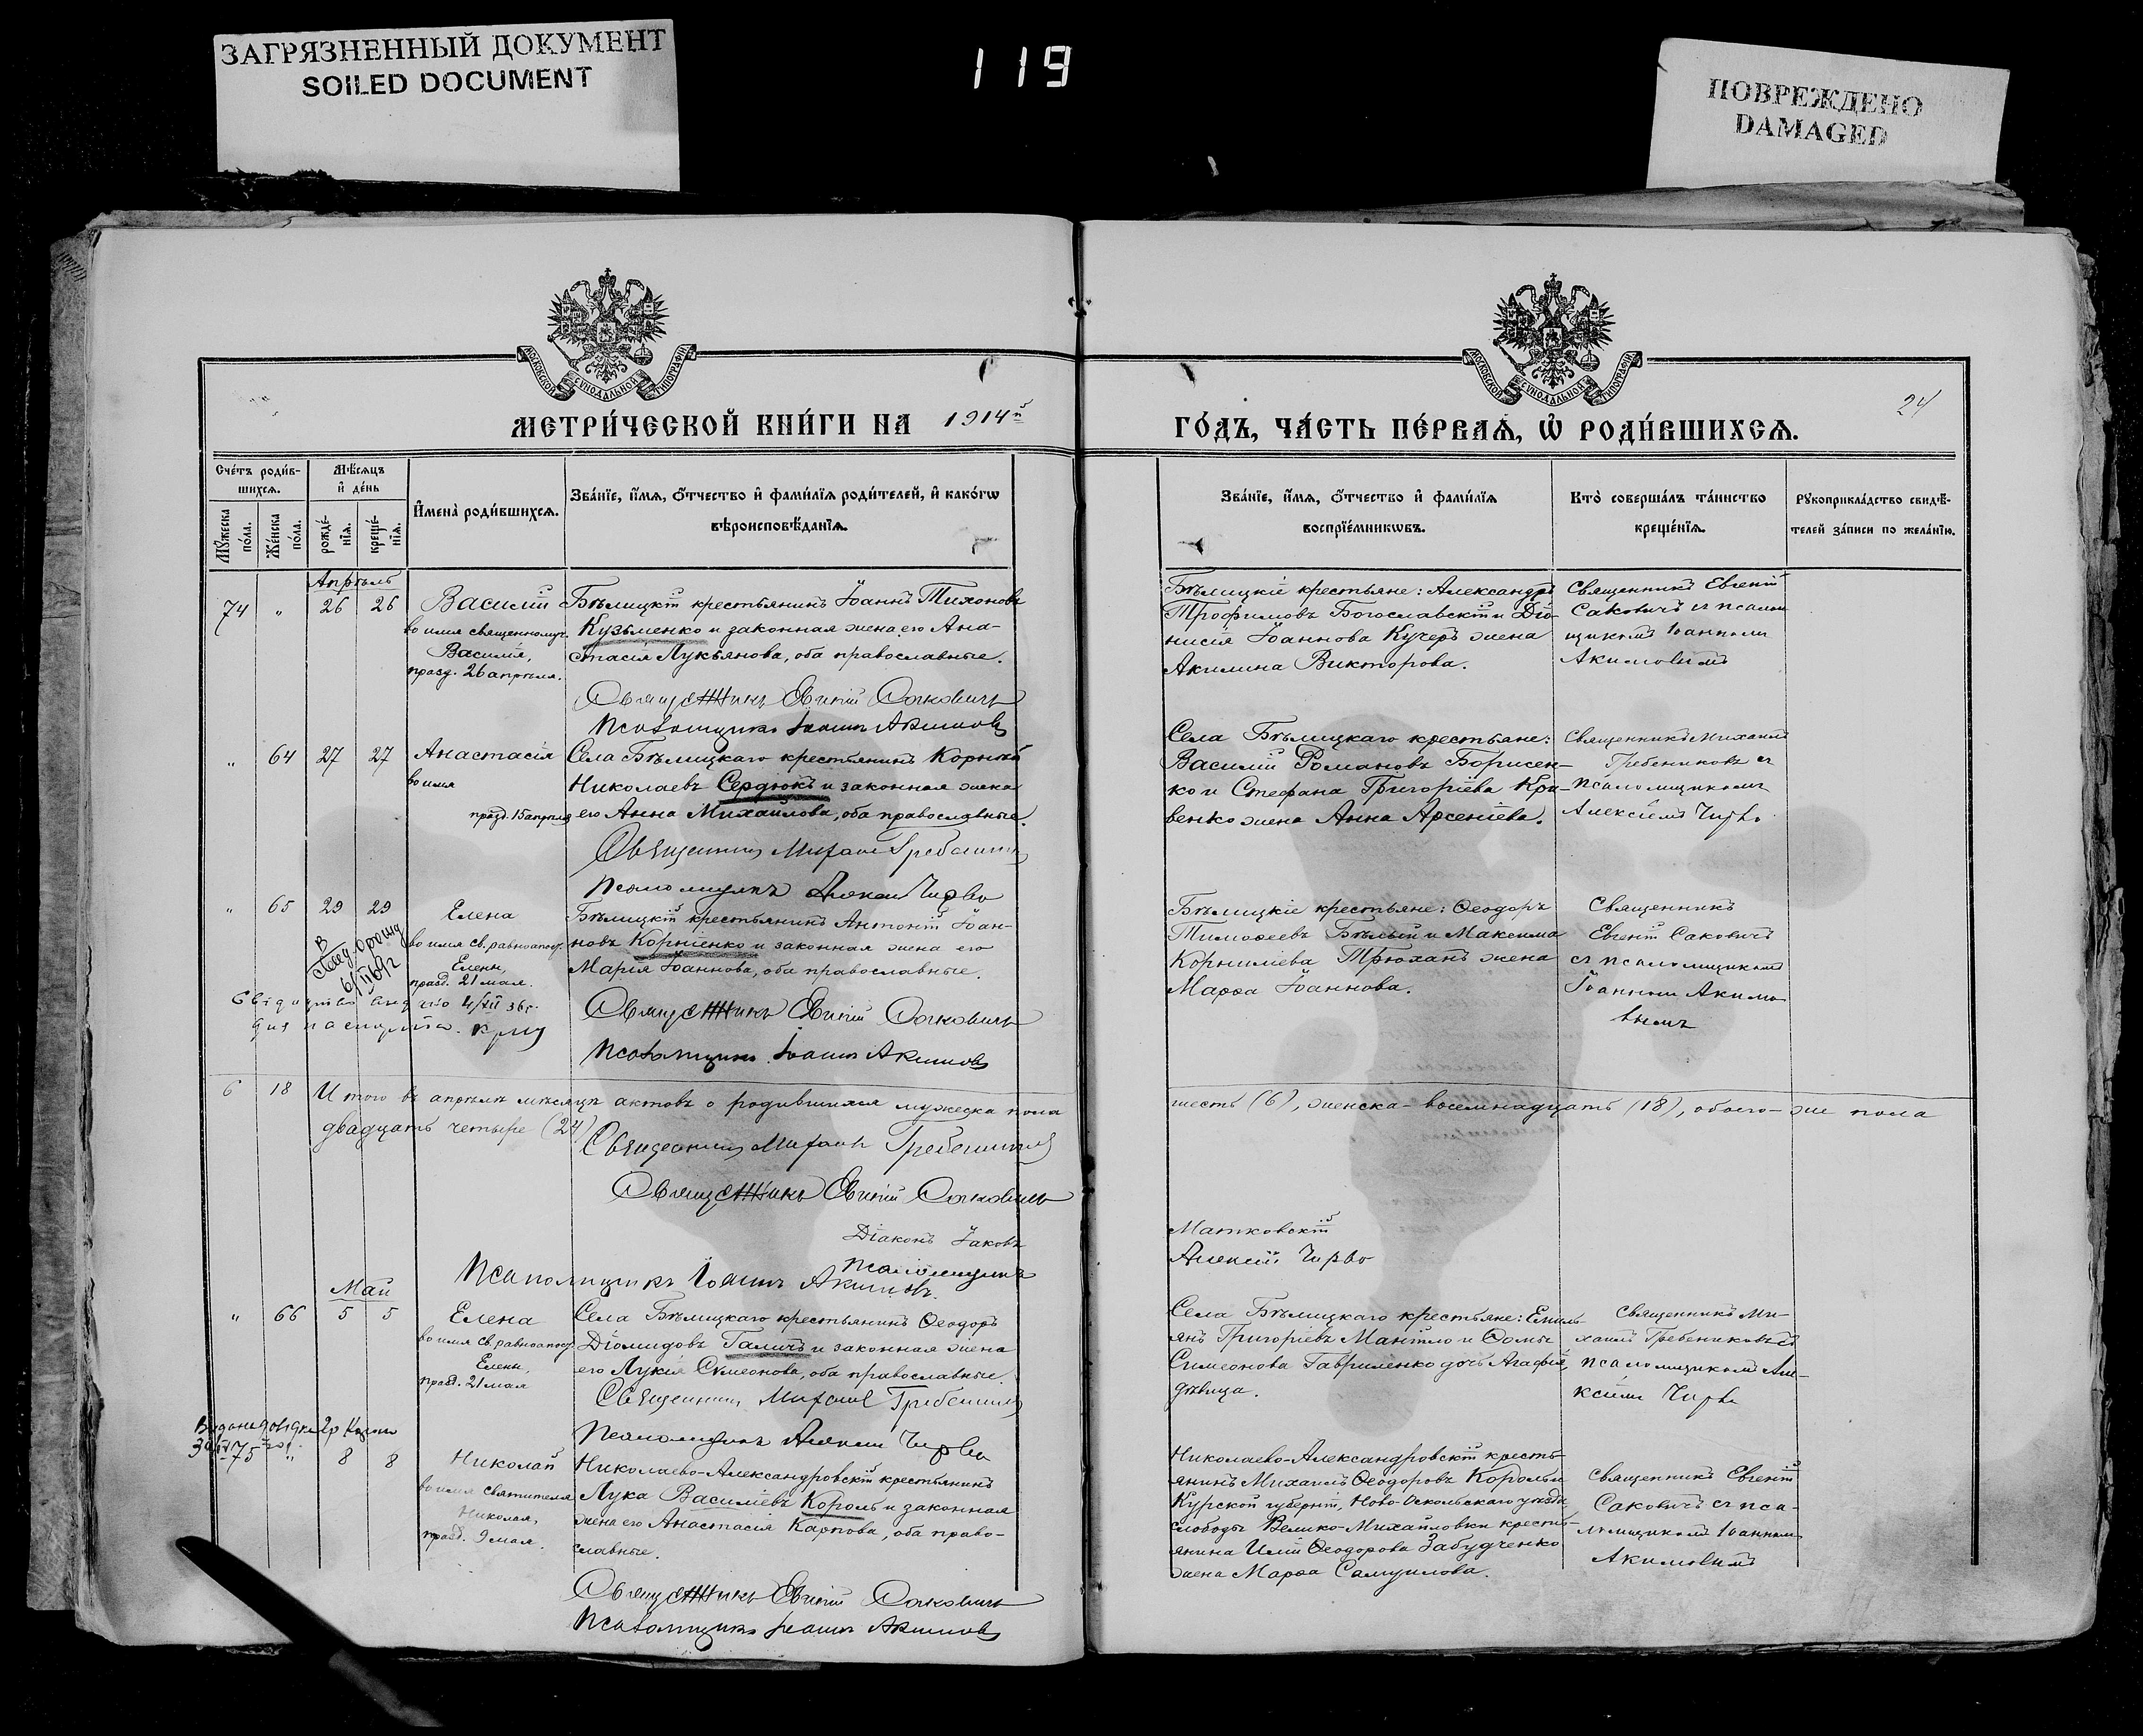 ЗАГРЯЗНЕННЫЙ ДОКУМЕНТ
SOILED DOCUMENT
119
ПОВРЕЖДЕНО
DAMAGED
МОСКОВСКОЙ СѴНОДАЛЬНОЙ ТИПОГРАФІИ
МОСКОВСКОЙ СѴНОДАЛЬНОЙ ТИПОГРАФІИ
24
МЕТРИ́ЧЕСКОЙ КНИ́ГИ НА 1914й
ГО́ДЪ, ЧА́СТЬ ПЕ́РВАѦ, Ѡ РОДИ́ВШИХСѦ.
Сче́тъ роди́в-
шихсѧ.
Мѣ́сѧцъ
и҆ де́нь
Мꙋ́жеска
по́ла.
Же́нска
по́ла.
рожде́-
нїѧ.
креще́-
нїѧ.
И҆мена̀ роди́вшихсѧ.
Зва́нїе, и҆́мѧ, ѻ҆́тчество и҆ фами́лїѧ роди́телей, и҆ како́гѡ
вѣроисповѣ́данїѧ.
Зва́нїе, и҆́мѧ, ѻ҆́тчество и҆ фами́лїѧ
воспрїе́мникѡвъ.
Кто̀ соверша́лъ та́инство
креще́нїѧ.
Рꙋкоприкла́дство свидѣ́-
телей за́писи по жела́нїю.
Апрѣль
74 " 26 26
Василій
во имя священномуч.
Василія,
празд. 26 апрѣля.
Бѣлицкій крестьянинъ Іоаннъ Тихоновъ
Кузьменко и законная жена его Ана-
стасія Лукьянова, оба православные.
Священникъ Евгеній Саковичъ
Псаломщикъ Іоаннъ Акимовъ
Бѣлицкіе крестьяне: Александръ
Трофимовъ Богославскій и Діо-
нисія Іоаннова Кучеръ жена
Акилина Викторова.
Священникъ Евгеній
Саковичъ съ псалом-
щикомъ Іоанномъ
Акимовымъ
" 64 27 27
Анастасія
во имя
празд. 15 апрѣля
Села Бѣлицкаго крестьянинъ Корнилій
Николаевъ Сердюкъ и законная жена
его Анна Михайлова, оба православные.
Священникъ Михаилъ Гребениковъ
Псаломщикъ Алексій Чирва
Села Бѣлицкаго крестьяне:
Василій Романовъ Борисен-
ко и Стефана Григоріева Кри-
венко жена Анна Арсеніева.
Священникъ Михаилъ
Гребениковъ съ
псаломщикомъ
Алексіемъ Чирво
" 65 29 29
Елена
во имя св. равноапост.
Елены,
празд. 21 мая.
Бѣлицкій крестьянинъ Антоній Іоан-
новъ Корніенко и законная жена его
Марія Іоаннова, оба православные.
Священникъ Евгеній Саковичъ
Псаломщикъ Іоаннъ Акимовъ
Бѣлицкіе крестьяне: Ѳеодоръ
Тимоѳеевъ Бѣлый и Максима
Корниліева Трюханъ жена
Марѳа Іоаннова.
Священникъ
Евгеній Саковичъ
съ псаломщикомъ
Іоанномъ Акимо-
вымъ
6 18 Итого въ апрѣлѣ мѣсяцѣ актовъ о родившихся мужеска пола
шесть (6), женска - восемнадцать (18), обоего-же пола
двадцать четыре (24)
Священникъ Михаилъ Гребениковъ
Священникъ Евгеній Саковичъ
Діаконъ Іаковъ
Матковскій
Псаломщикъ
Алексій Чирво
Псаломщикъ Іоаннъ Акимовъ.
Май
" 66 5 5
Елена
во имя св. равноапост.
Елены,
празд. 21 мая
Села Бѣлицкаго крестьянинъ Ѳеодоръ
Діомидовъ Галичъ и законная жена
его Лукія Симеонова, оба православные.
Священникъ Михаилъ Гребениковъ
Псаломщикъ Алексій Чирво
Села Бѣлицкаго крестьяне: Емиль-
янъ Григоріевъ Мантло и Ѳомы
Симеонова Гавриленко дочь Агафія,
дѣвица.
Священникъ Ми-
хаилъ Гребениковъ съ
псаломщикомъ Але-
ксіемъ Чирво
75 " 8 8
Николай
во имя святителя
Николая,
празд. 9 мая.
Николаево-Александровскій крестьянинъ
Лука Василіевъ Король и законная
жена его Анастасія Карпова, оба право-
славные.
Священникъ Евгеній Саковичъ
Псаломщикъ Іоаннъ Акимовъ
Николаево-Александровскій кресть-
янинъ Михаилъ Ѳеодоровъ Король и
Курской губерніи, Ново-Оскольскаго уѣзда
слободы Велико-Михайловки кресть-
янина Иліи Ѳеодорова Забудченко
жена Марѳа Самуилова.
Священникъ Евгеній
Саковичъ съ пса-
ломщикомъ Іоанномъ
Акимовымъ